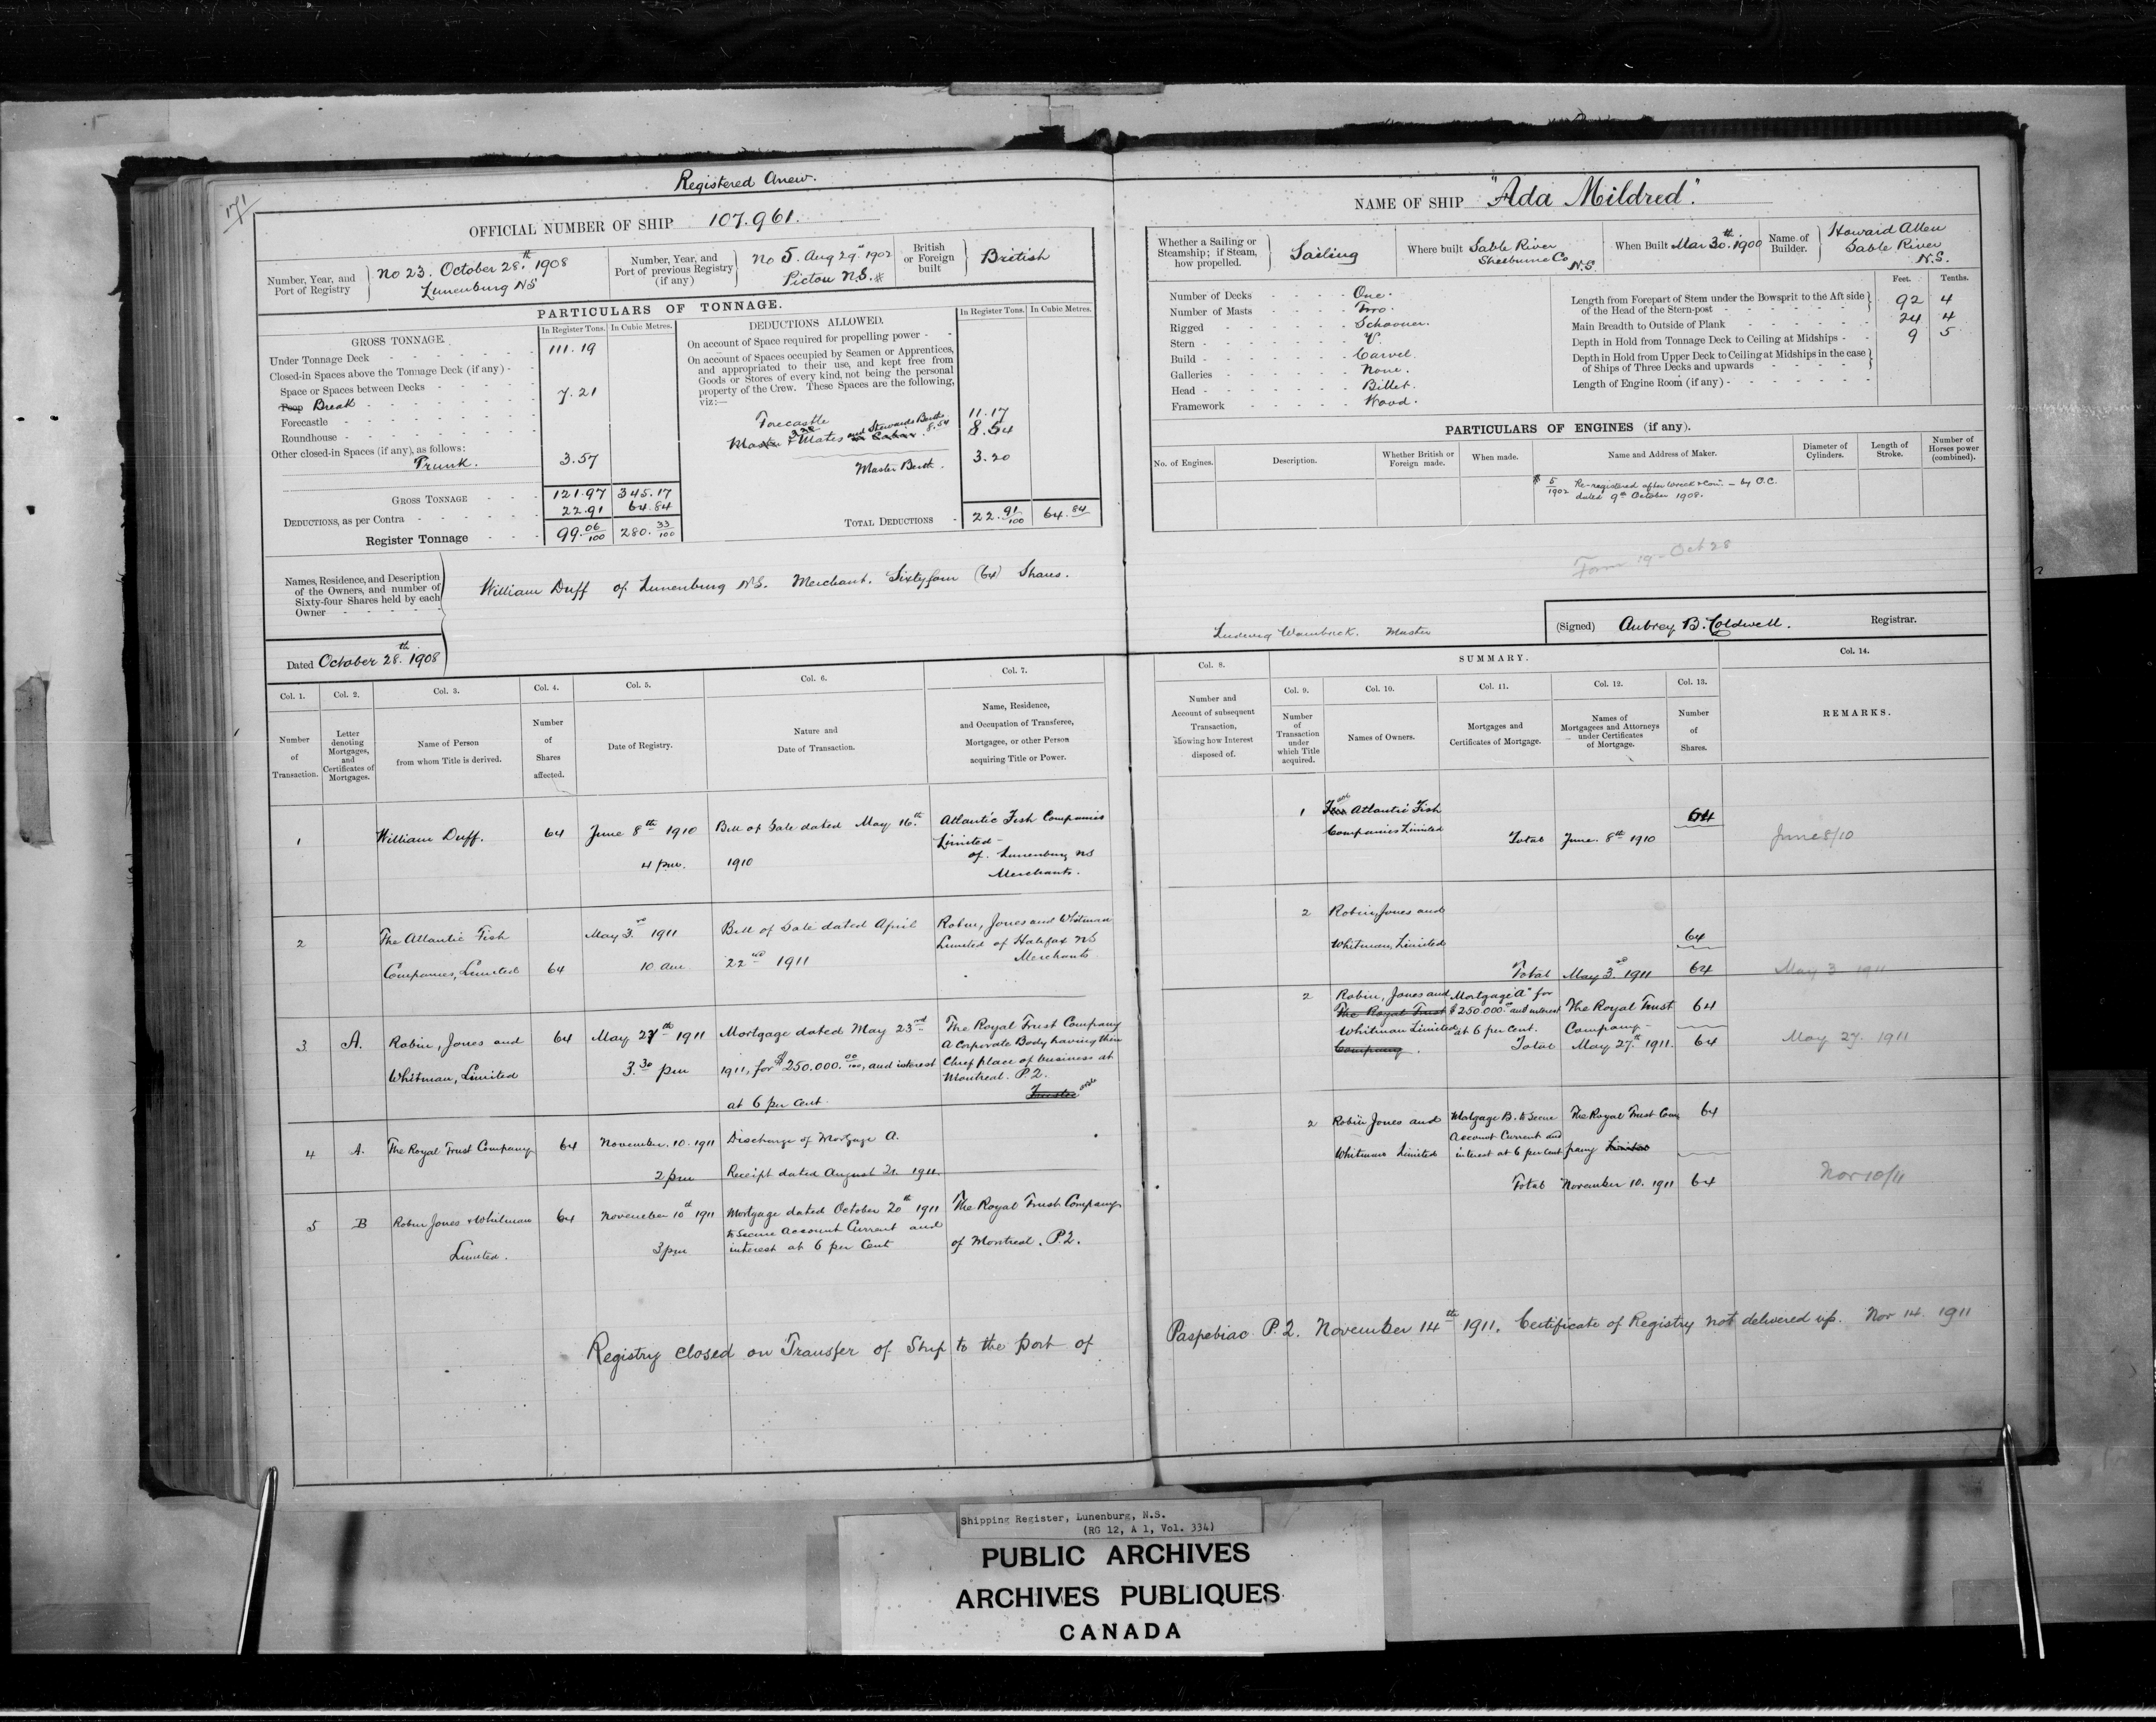 171
Registered Anew.
OFFICIAL NUMBER OF SHIP 107.961.
Number, Year, and Port of Registry
No 23. October 28th. 1908
Lunenburg NS
Number, Year, and Port of previous Registry (if any)
No 5. Aug 29" 1902
Pictou N.S. #
British or Foreign built
British
PARTICULARS OF TONNAGE.
GROSS TONNAGE.
In Register Tons. In Cubic Metres.
Under Tonnage Deck 111.19
Closed-in Spaces above the Tonnage Deck (if any)
Space or Spaces between Decks
Poop Break 7.21
Forecastle
Roundhouse
Other closed-in Spaces (if any), as follows:
Trunk. 3.57
GROSS TONNAGE 121.97 345.17
DEDUCTIONS, as per Contra 22.91 64.84
Register Tonnage 99.06/100 280.33/100
DEDUCTIONS ALLOWED.
In Register Tons. In Cubic Metres.
On account of Space required for propelling power
On account of Spaces occupied by Seamen or Apprentices,
and appropriated to their use, and kept free from
Goods or Stores of every kind, not being the personal
property of the Crew. These Spaces are the following,
viz:—
Forecastle 11.17
Master & Mates and Stewards Berth 8.54 8.54
Master Berth. 3.20
TOTAL DEDUCTIONS 22.91/100 64.84
Names, Residence, and Description
of the Owners, and number of
Sixty-four Shares held by each
Owner
William Duff of Lunenburg N.S. Merchant. Sixtyfour (64) Shares.
Dated October 28th. 1908
NAME OF SHIP "Ada Mildred".
Whether a Sailing or Steamship; if Steam, how propelled.
Sailing
Where built Sable River
Shelburne Co N.S.
When Built Mar 30th. 1900
Name of Builder.
Howard Allen
Sable River
N.S.
Number of Decks One.
Number of Masts Two.
Rigged Schooner.
Stern V.
Build Carvel.
Galleries None.
Head Billet.
Framework Wood.
Feet. Tenths.
Length from Forepart of Stem under the Bowsprit to the Aft side
of the Head of the Stern-post 92 4
Main Breadth to Outside of Plank 24 4
Depth in Hold from Tonnage Deck to Ceiling at Midships 9 5
Depth in Hold from Upper Deck to Ceiling at Midships in the case
of Ships of Three Decks and upwards
Length of Engine Room (if any)
PARTICULARS OF ENGINES (if any).
No. of Engines. Description. Whether British or Foreign made. When made. Name and Address of Maker. Diameter of Cylinders. Length of Stroke. Number of Horses power (combined).
# 5/1902 Re-registered after wreck & Con. — by O.C.
dated 9th October 1908.
Form 19 - Oct 28
Ludwig Wambach. Master
(Signed) Aubrey B. Coldwell. Registrar.
Col. 1. Col. 2. Col. 3. Col. 4. Col. 5. Col. 6. Col. 7.
Number of Transaction.
Letter denoting Mortgages, and Certificates of Mortgages.
Name of Person from whom Title is derived.
Number of Shares affected.
Date of Registry.
Nature and Date of Transaction.
Name, Residence, and Occupation of Transferee, Mortgagee, or other Person acquiring Title or Power.
1 William Duff. 64 June 8th 1910 Bill of Sale dated May 16th. Atlantic Fish Companies
4 pm. 1910 Limited -
of. Lunenburg NS
Merchants.
2 The Atlantic Fish May 3rd 1911 Bill of Sale dated April Robin, Jones and Whitman
Companies, Limited 64 10 am 22nd 1911 Limited of Halifax NS
Merchants
3 A. Robin, Jones and 64 May 27th 1911 Mortgage dated May 23rd The Royal Trust Company
Whitman, Limited 3.30 pm 1911, for $250.000.00/100, and interest A Corporate Body having their
at 6 per cent. Chief place of business at
Montreal. P.Q.
Trustee
4 A. The Royal Trust Company 64 November. 10. 1911 Discharge of Mortgage A.
2 pm Receipt dated August 21. 1911.
5 B Robin Jones & Whitman 64 November 10th 1911 Mortgage dated October 20th 1911 The Royal Trust Company
Limited. 3 pm to Secure Account Current and of Montreal. P.Q.
interest at 6 per Cent
Col. 8. SUMMARY. Col. 14.
Col. 9. Col. 10. Col. 11. Col. 12. Col. 13.
Number and Account of subsequent Transaction, showing how Interest disposed of.
Number of Transaction under which Title acquired.
Names of Owners.
Mortgages and Certificates of Mortgage.
Names of Mortgagees and Attorneys under Certificates of Mortgage.
Number of Shares.
REMARKS.
1 Atlantic Fish 64
Companies Limited
Total June. 8th 1910 June 8/10
2 Robin, Jones and
Whitman, Limited 64
Total May 3rd. 1911 64 May 3 1911
2 Robin, Jones and Mortgage "A" for
The Royal Trust $250.000.00 and interest The Royal Trust 64
Whitman Limited at 6 per cent. Company -
Company. Total May 27th. 1911. 64 May 27. 1911
2 Robin Jones and Mortgage B. to Secure The Royal Trust Com 64
Account Current and
Whitman Limited interest at 6 per cent pany Limited
Total November 10. 1911 64 Nov 10/11
Registry closed on Transfer of Ship to the port of Paspebiac P.Q. November 14th 1911. Certificate of Registry not delivered up. Nov 14. 1911
Shipping Register, Lunenburg, N.S.
(RG 12, A 1, Vol. 334)
PUBLIC ARCHIVES
ARCHIVES PUBLIQUES
CANADA